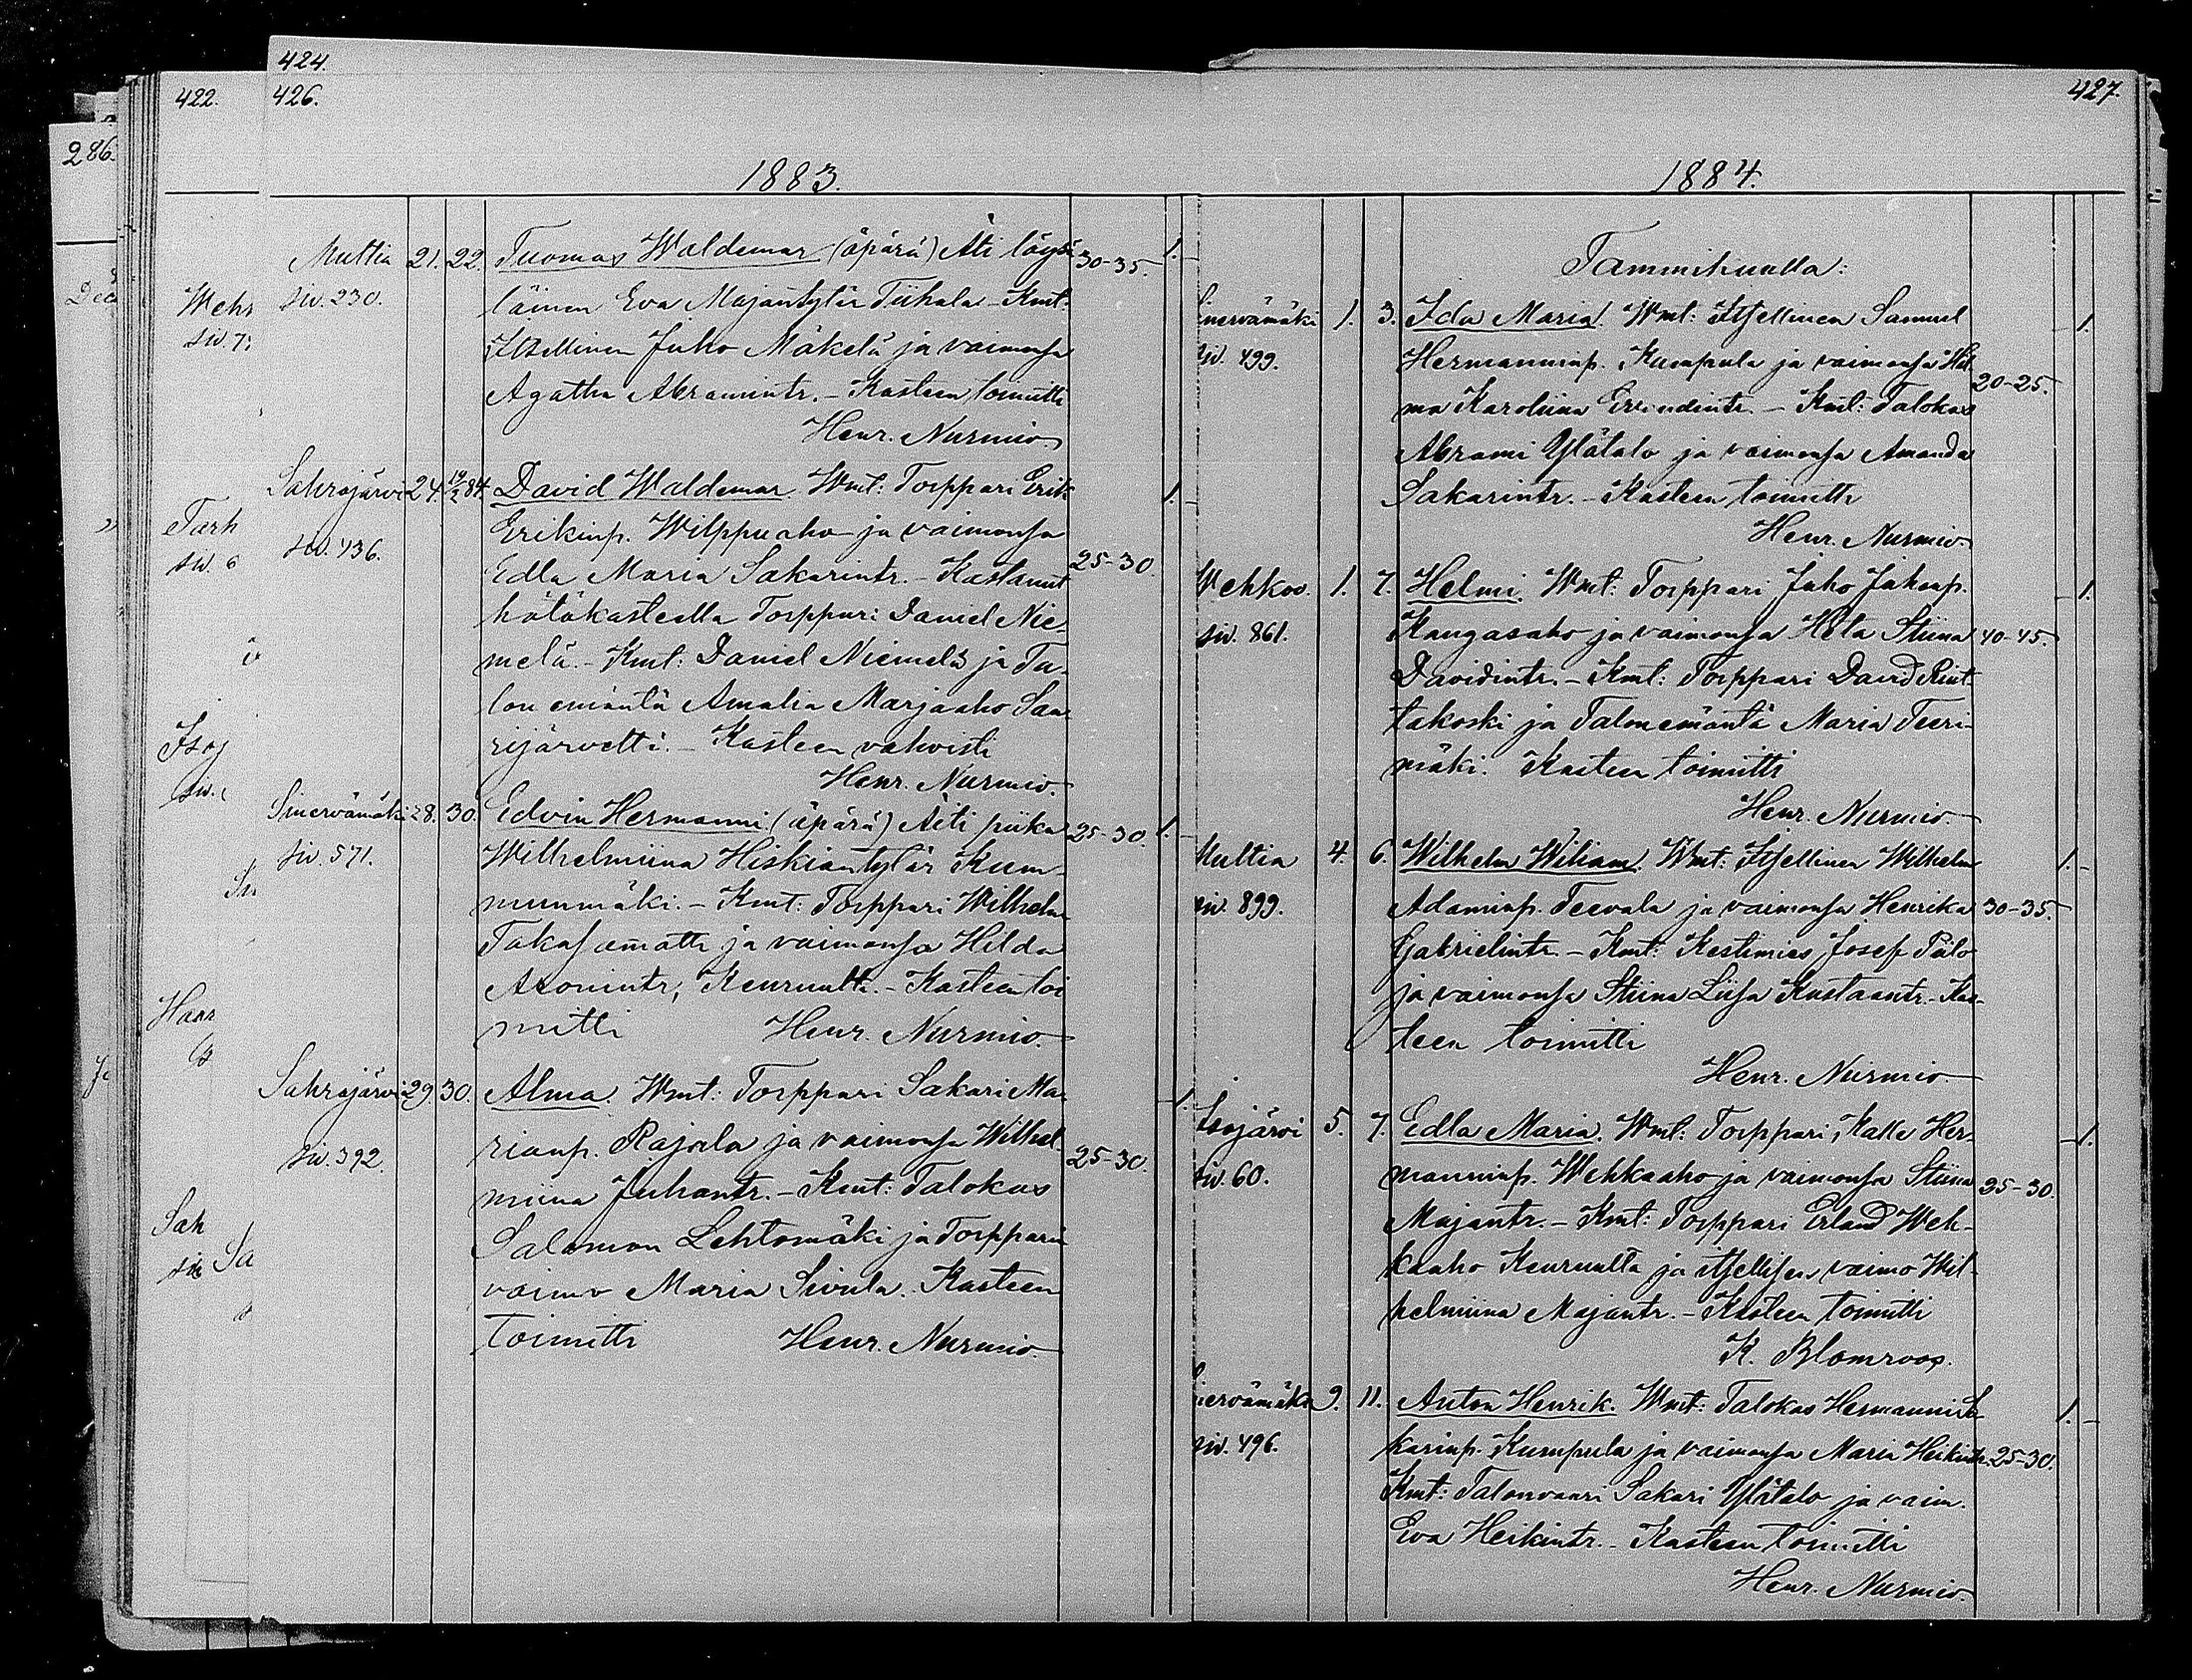 424.
422.
426.
286.
1883.
Multia 21. 22. Tuomas Waldemar (äpärä) Äti löysä 30-35. 1.
siv. 230. läinen Eva Majantytär Tiihala - Kmt:
Itsellinen Juho Mäkelä ja vaimonsa
Agatha Abramintr. - Kasteen toimitti
Henr. Nurmio.
Sahrajärvi 24. 19/2 84. David Waldemar. Wmt: Torppari Erik 1.
siv. 436. Erikinp. Wilppuaho ja vaimonsa
Edla Maria Sakarintr. - Kastanut 25-30.
hätäkasteella Torppari Daniel Nie-
melä. - Kmt: Daniel Niemelä ja Ta-
lon emäntä Amalia Marjaaho Saa-
rijärveltä. - Kasteen vahvisti
Henr. Nurmio.
Sinervämäki 28. 30. Edvin Hermanni. (äpärä) Äiti piika 25-30. 1.
siv. 571. Wilhelmiina Hiskiantytär Kum-
munmäki. - Kmt: Torppari Wilhelm
ja vaimonsa Hilda
Aronintr, Keuruulta. - Kasteen toi
mitti Henr. Nurmio.
Sahrajärvi 29. 30. Alma. Wmt: Torppari Sakari Ma- 1.
siv. 392. rianp. Rajala ja vaimonsa Wilhel- 25-30.
miina Juhantr. - Kmt: Talokas
Salomon Lehtomäki ja Torpparin
vaimo Maria Sivula. Kasteen
toimitti Henr. Nurmio.
427.
1884.
Tammikuulla:
Sinervämäki 1. 3. Ida Maria. Wmt: Itsellinen Samuel 1.
siv. 499. Hermanninp. Kumpula ja vaimonsa Hel- 20-25.
ma Karoliina - Kmt: Talokas
Abrami Ylätalo ja vaimonsa Amanda
Sakarintr. - Kasteen toimitti
Henr. Nurmio.
Wehkoo. 1. 7. Helmi. Wmt: Torppari Juho Juhonp. 1.
siv. 861. Kangasaho ja vaimonsa Heta Stiina 40-45.
Davidintr. - Kmt: Torppari David Rint-
takoski ja Talonemäntä Maria Teeri-
mäki. Kasteen toimitti
Henr. Nurmio.
Multia 4. 6. Wilhelm Wiliam. Wmt: Itsellinen Wilhelm 1.
siv. 899. Adaminp. Teevala ja vaimonsa Henrika 30-35.
Gabrielintr. - Kmt: Kestimies Josef Piilo
ja vaimonsa Stiina Liisa Kustaantr. Kas-
teen toimitti
Henr. Nurmio.
Isojärvi 5. 7. Edla Maria. Wmt: Torppari, Kalle Her- 1.
siv. 60. manninp. Wehkaaho ja vaimonsa Stiina 25-30.
Majantr. - Kmt: Torppari Erland Weh-
kaaho Keuruulta ja itsellisen vaimo Wil-
helmiina Majantr. - Kasteen toimitti
K. Blomroos.
Sinervämäki 9. 11. Anton Henrik. Wmt: Talokas Hermanni Sa 1.
siv. 496. karinp. Kumpula ja vaimonsa Maria Heikintr. 25-30.
Kmt: Talonvaari Sakari Ylätalo ja vaim.
Eva Heikintr. - Kasteen toimitti
Henr. Nurmio.